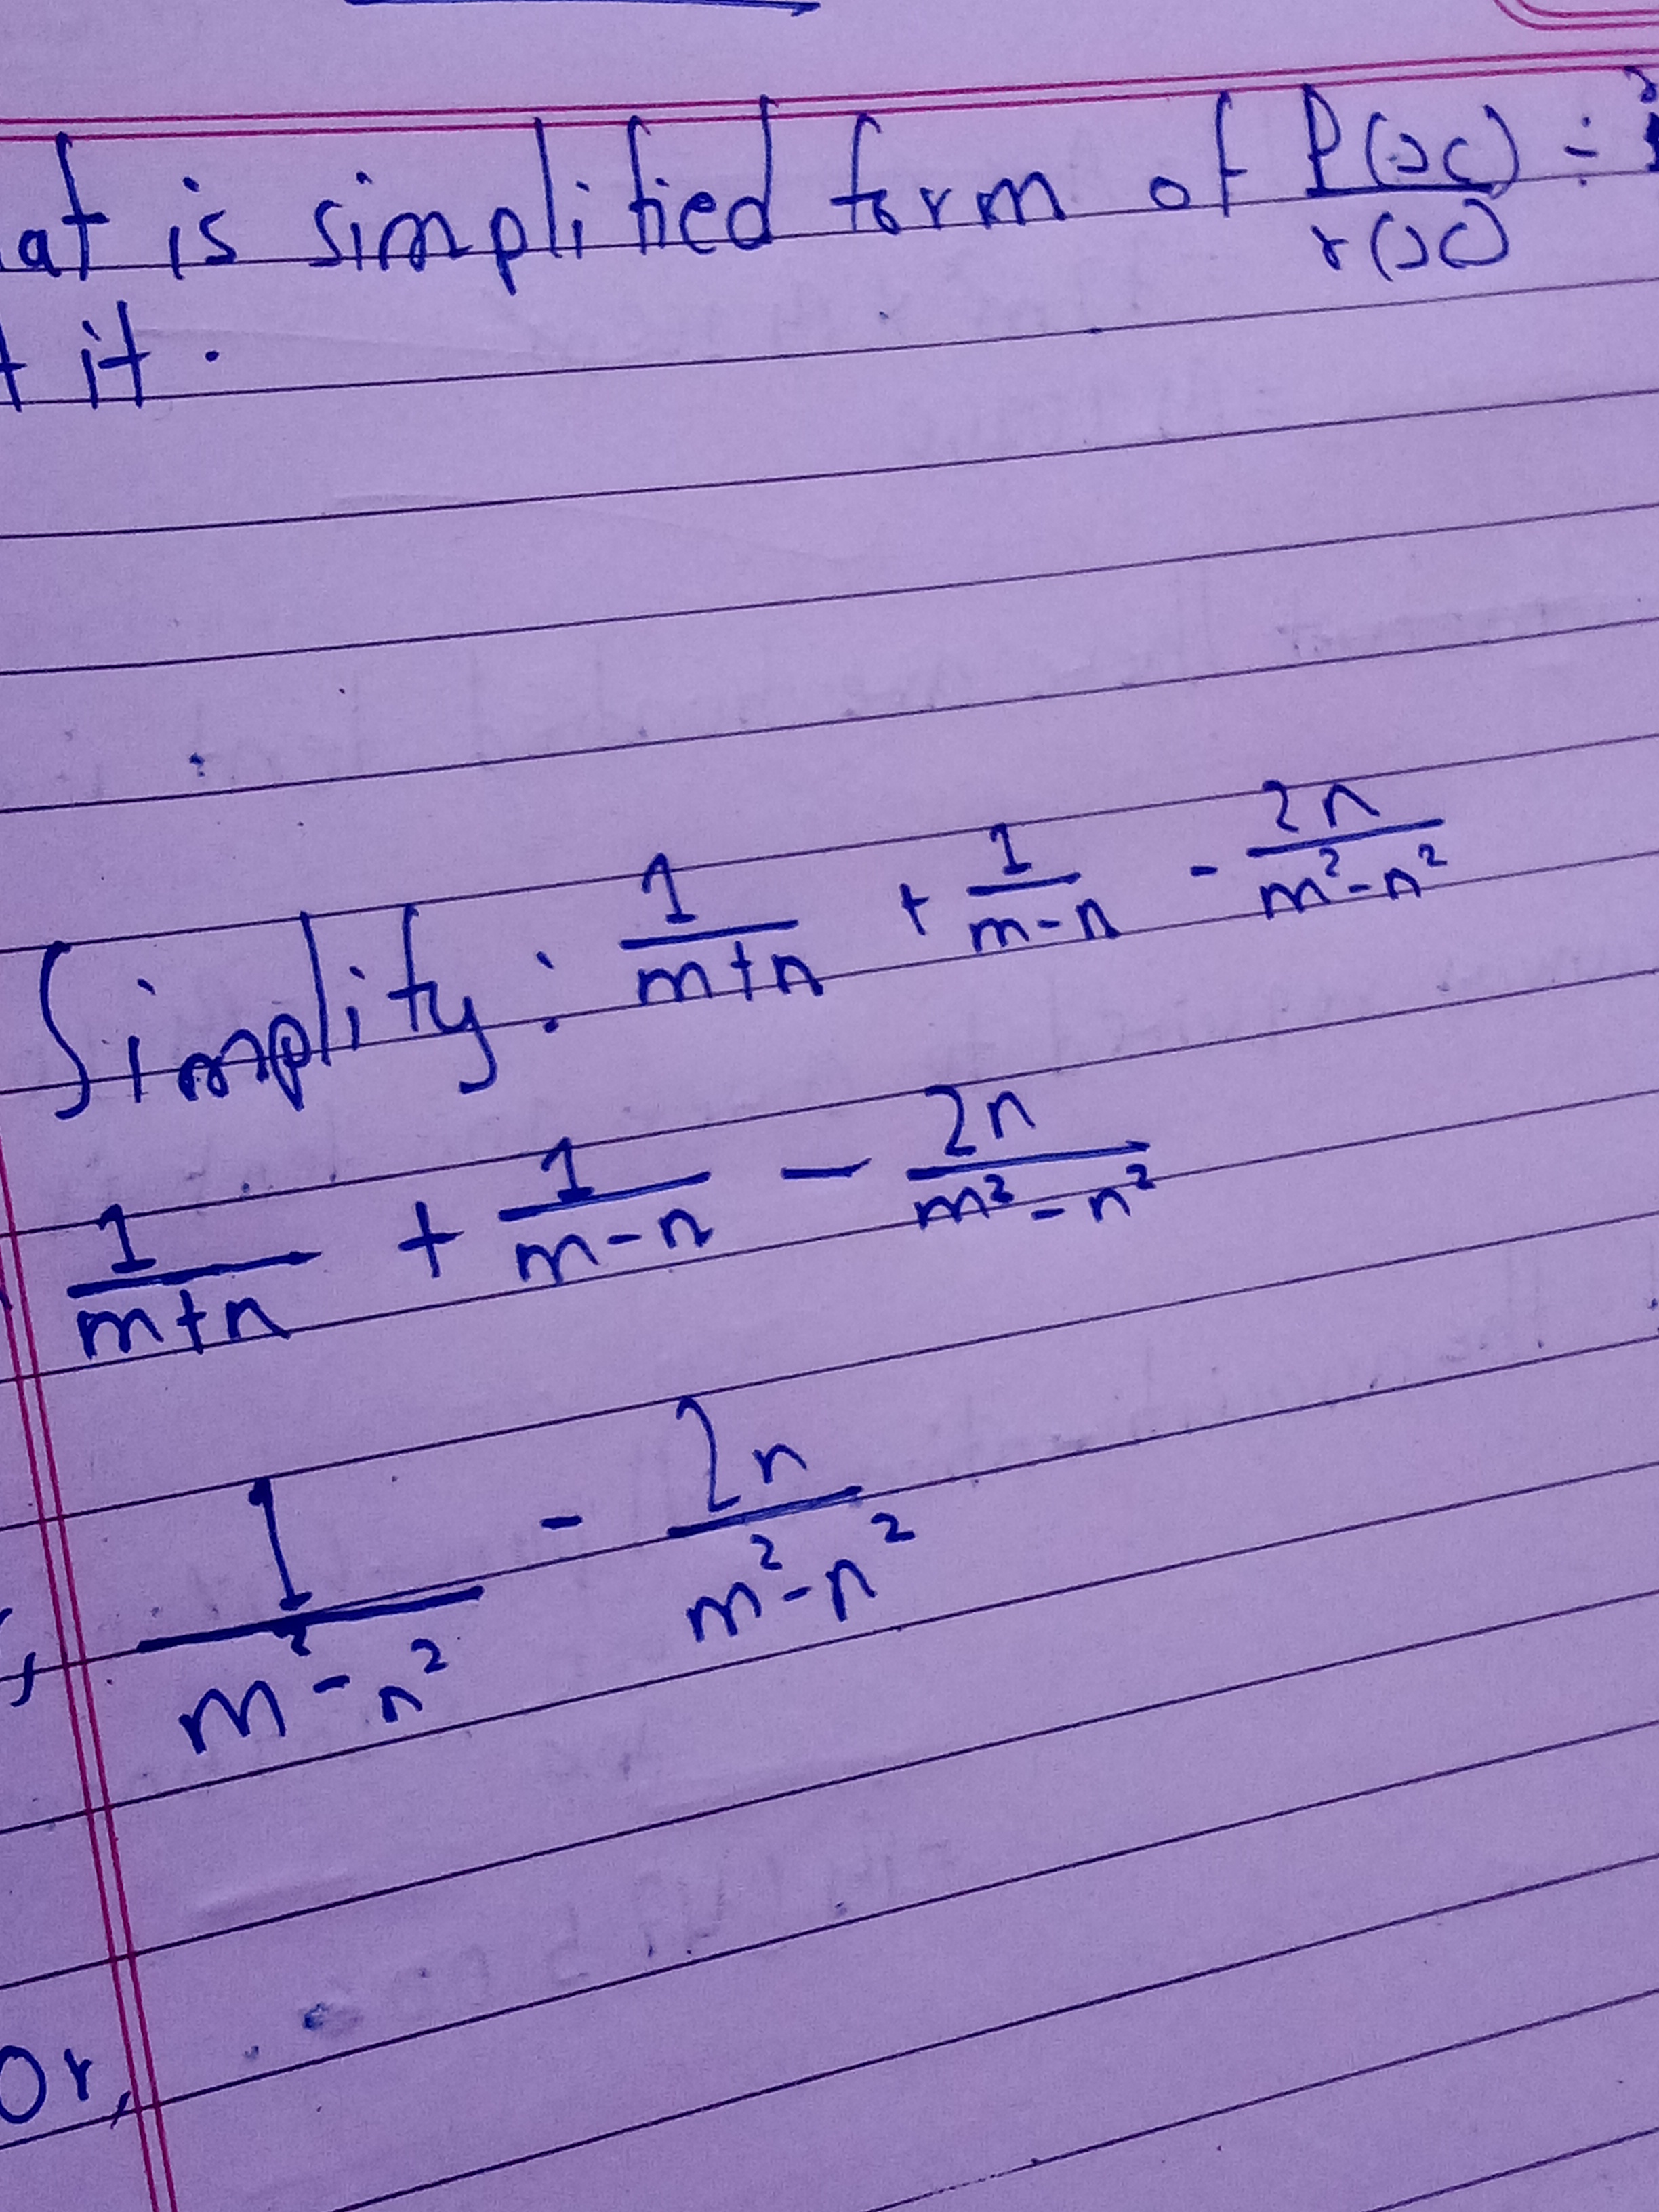 at is simplified form of P(x)/r(x) ÷
it.
Simplify: 1/(m+n) + 1/(m-n) - 2n/(m²-n²)
1/(m+n) + 1/(m-n) - 2n/(m²-n²)
1/(m²-n²) - 2n/(m²-n²)
Or,